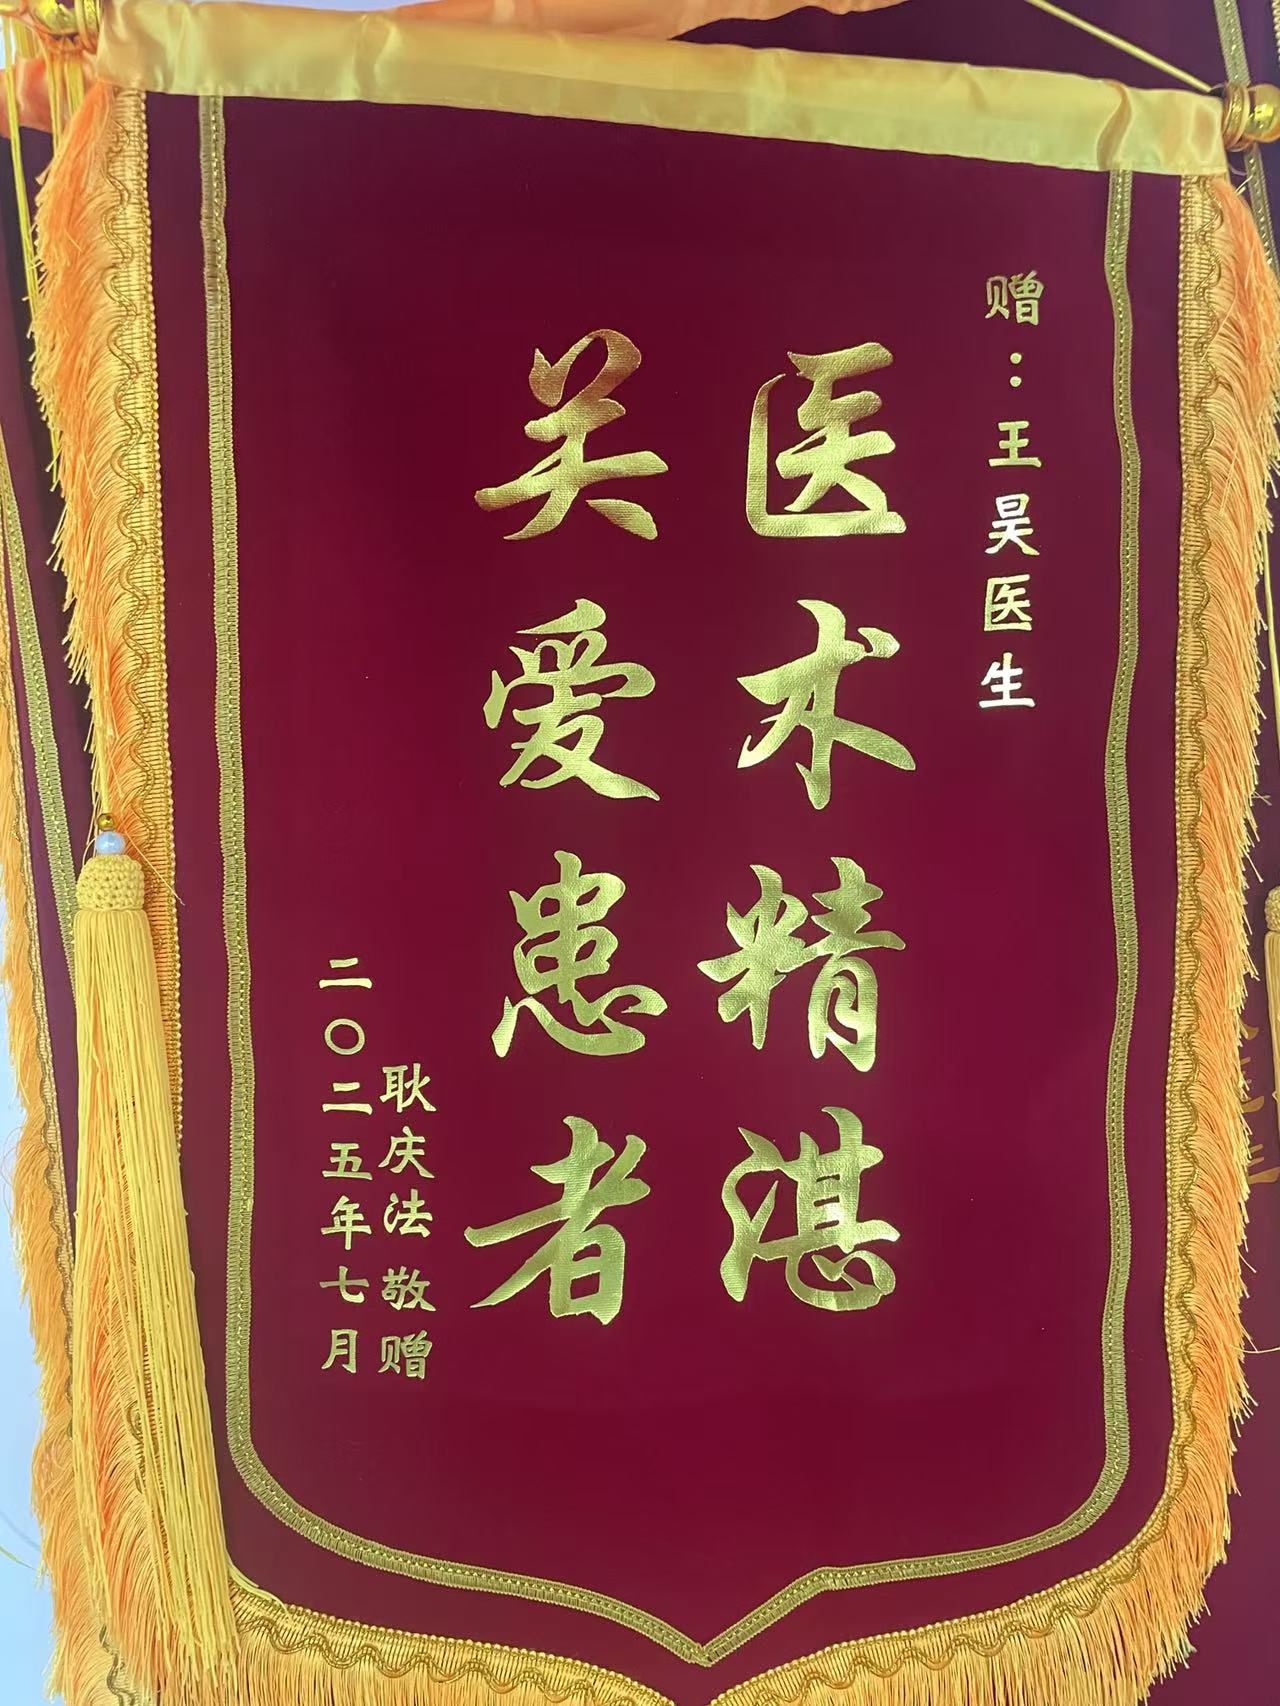 赠：王昊医生
医术精湛
关爱患者
耿庆法 敬赠
二〇二五年七月